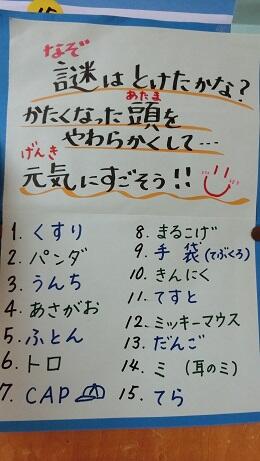 なぞ
謎はとけたかな?
あたま
かたくなった頭を
やわらかくして…
げんき
元気にすごそう!!
1. くすり
2. パンダ
3. うんち
4. あさがお
5. ふとん
6. トロ
7. CAP
8. まるこげ
9. 手袋(てぶくろ)
10. きんにく
11. てすと
12. ミッキーマウス
13. だんご
14. ミ (耳のミ)
15. てら